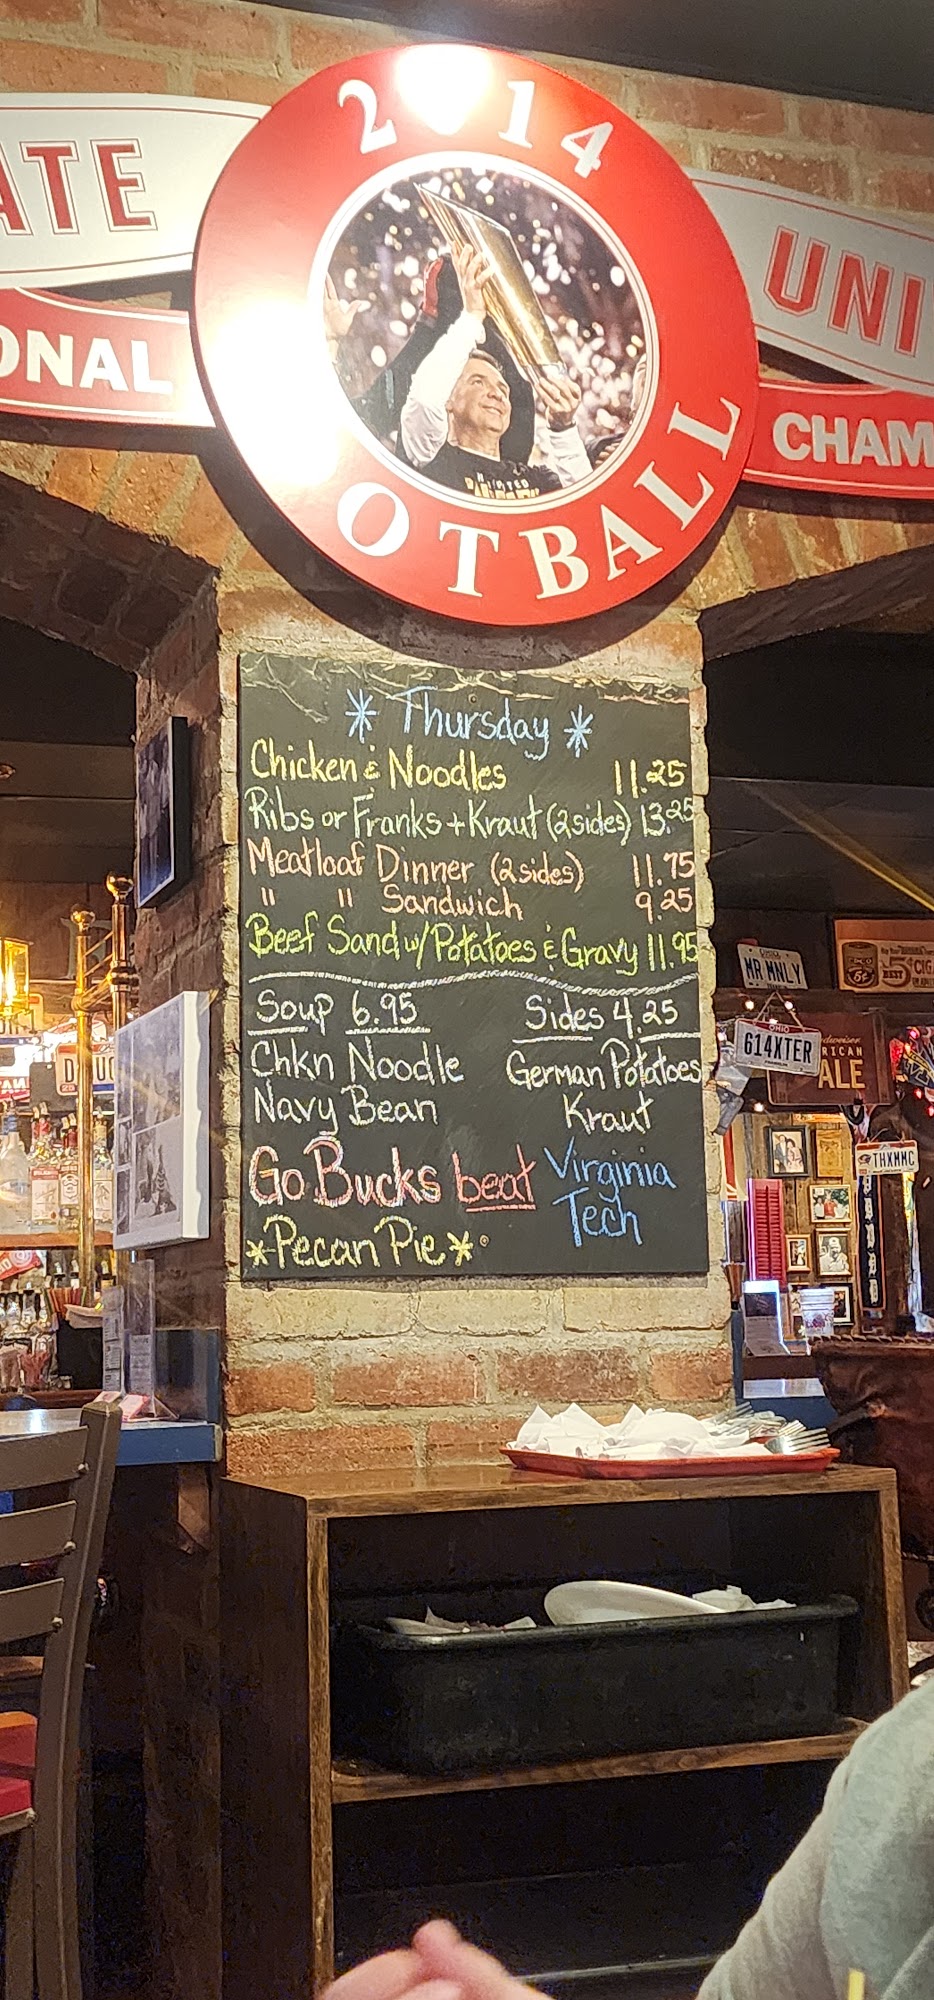 2014
ATE
UNI
ONAL
CHAM
OTBALL
* Thursday *
Chicken & Noodles 11.25
Ribs or Franks + Kraut (2 sides) 13.25
Meatloaf Dinner (2 sides) 11.75
" " Sandwich 9.25
Beef Sand w/ Potatoes & Gravy 11.95
Soup 6.95
Chkn Noodle
Navy Bean
Sides 4.25
German Potatoes
Kraut
Go Bucks beat Virginia Tech
*Pecan Pie*
MR MNLY
OHIO
614XTER
THXMMC
5¢
BEST
ALE